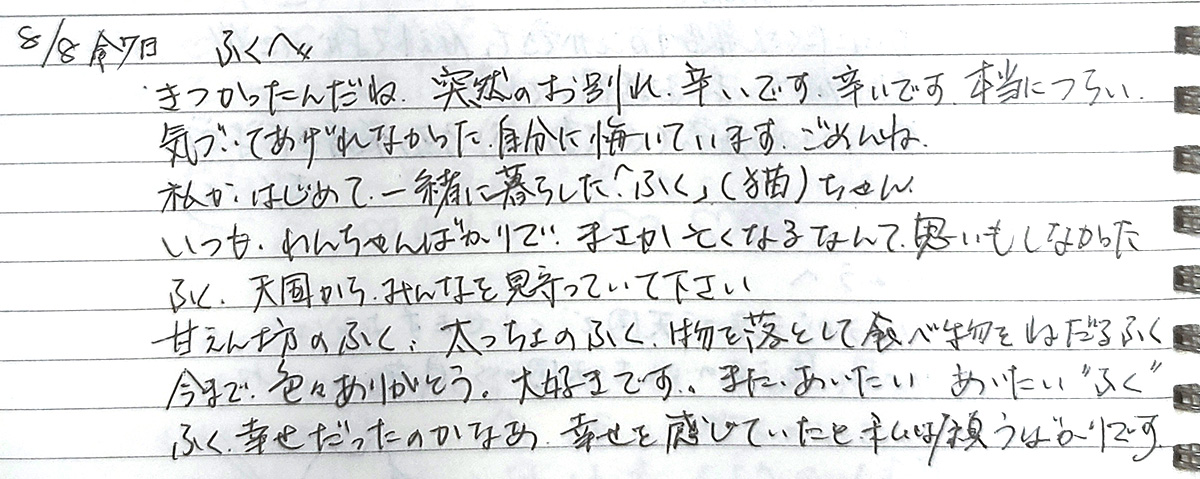 8/8 金曜日 ふくへ〃
きつかったんだね. 突然のお別れ. 辛いです. 辛いです. 本当につらい.
気づいてあげれなかった. 自分に悔いています. ごめんね.
私が. はじめて. 一緒に暮らした「ふく」(猫)ちゃん.
いつも. わんちゃんばかりで. まさか亡くなるなんて. 思いもしなかった
ふく. 天国から. みんなを見守っていて下さい
甘えん坊のふく. 太っちょのふく. 物を落として食べ物をねだるふく
今まで. 色々ありがとう。大好きです. また. あいたい あいたい "ふく"
ふく. 幸せだったのかなあ. 幸せを感じていたと私は願うばかりです.